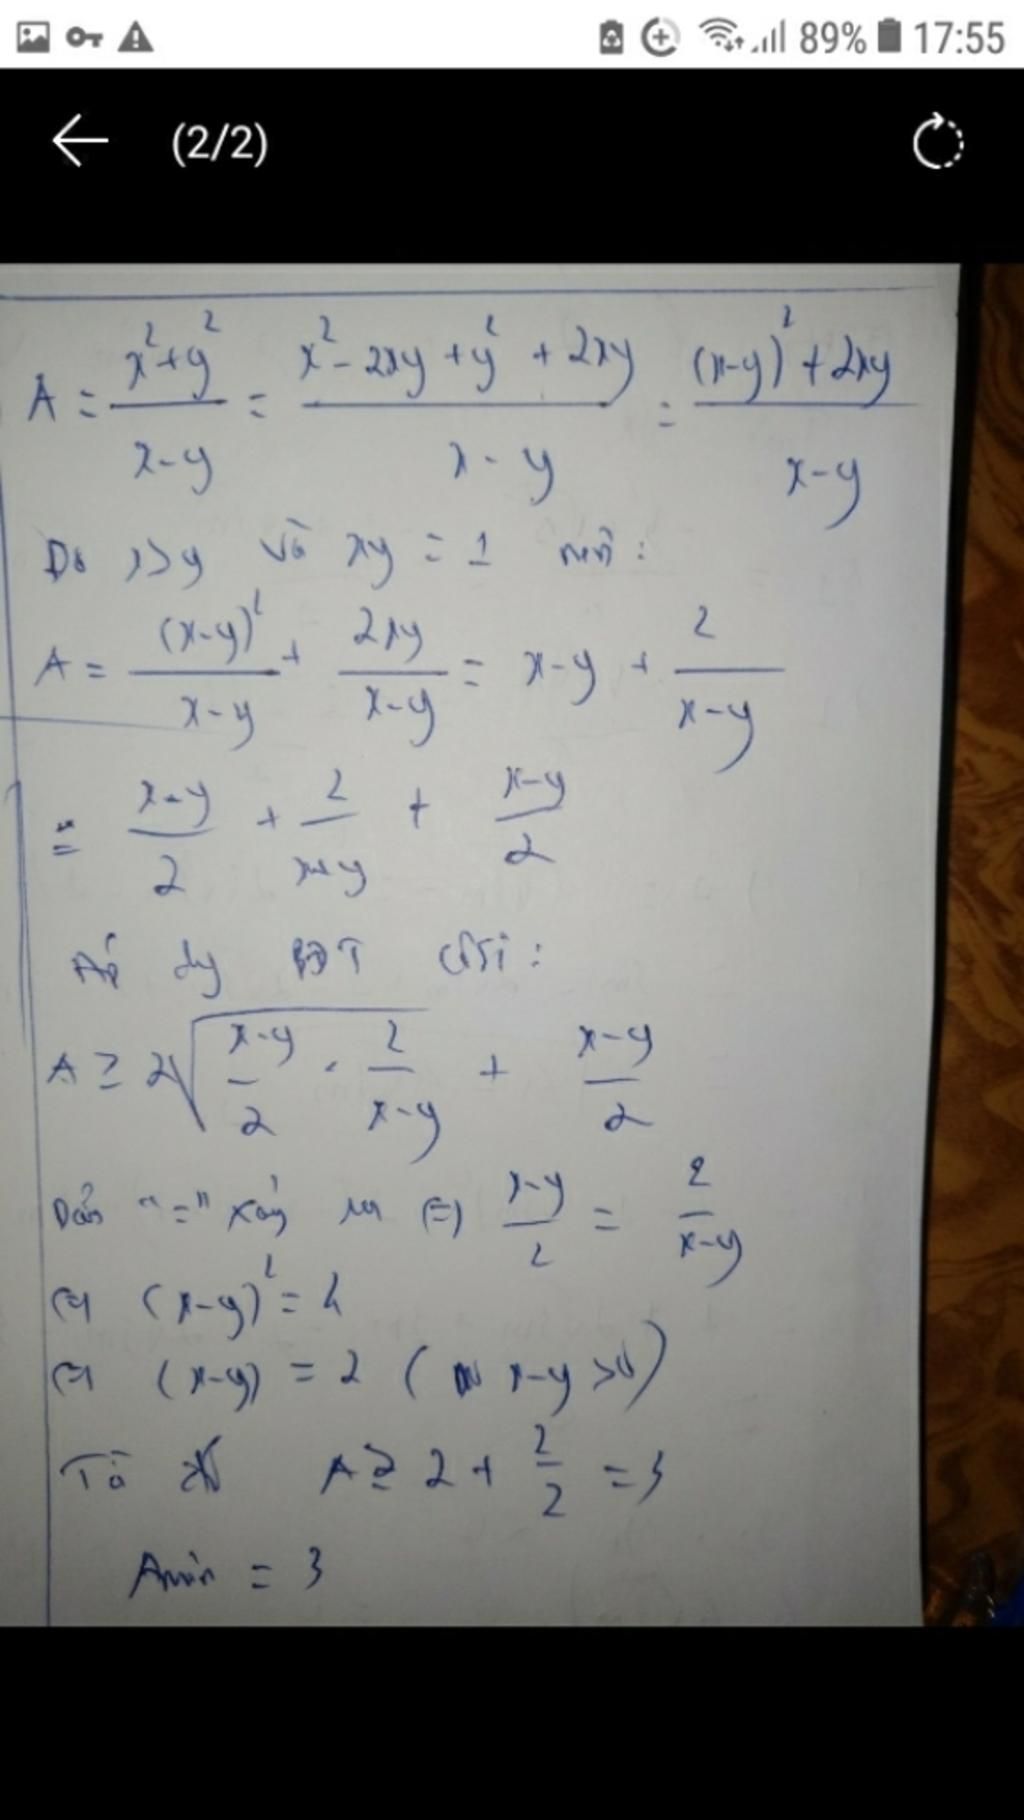 89% 17:55
(2/2)
A = \frac{x^2+y^2}{x-y} = \frac{x^2-2xy+y^2+2xy}{x-y} = \frac{(x-y)^2+2xy}{x-y}
Do x>y và xy = 1 nên :
A = \frac{(x-y)^2}{x-y} + \frac{2xy}{x-y} = x-y + \frac{2}{x-y}
= \frac{x-y}{2} + \frac{2}{x-y} + \frac{x-y}{2}
BĐT Côsi :
A ≥ 2\sqrt{\frac{x-y}{2} . \frac{2}{x-y}} + \frac{x-y}{2}
Dấu "=" xảy ra (=) \frac{x-y}{2} = \frac{2}{x-y}
(=) (x-y)^2 = 4
(=) (x-y) = 2 ( x-y >0)
Từ đó A ≥ 2 + \frac{2}{2} = 3
Amin = 3